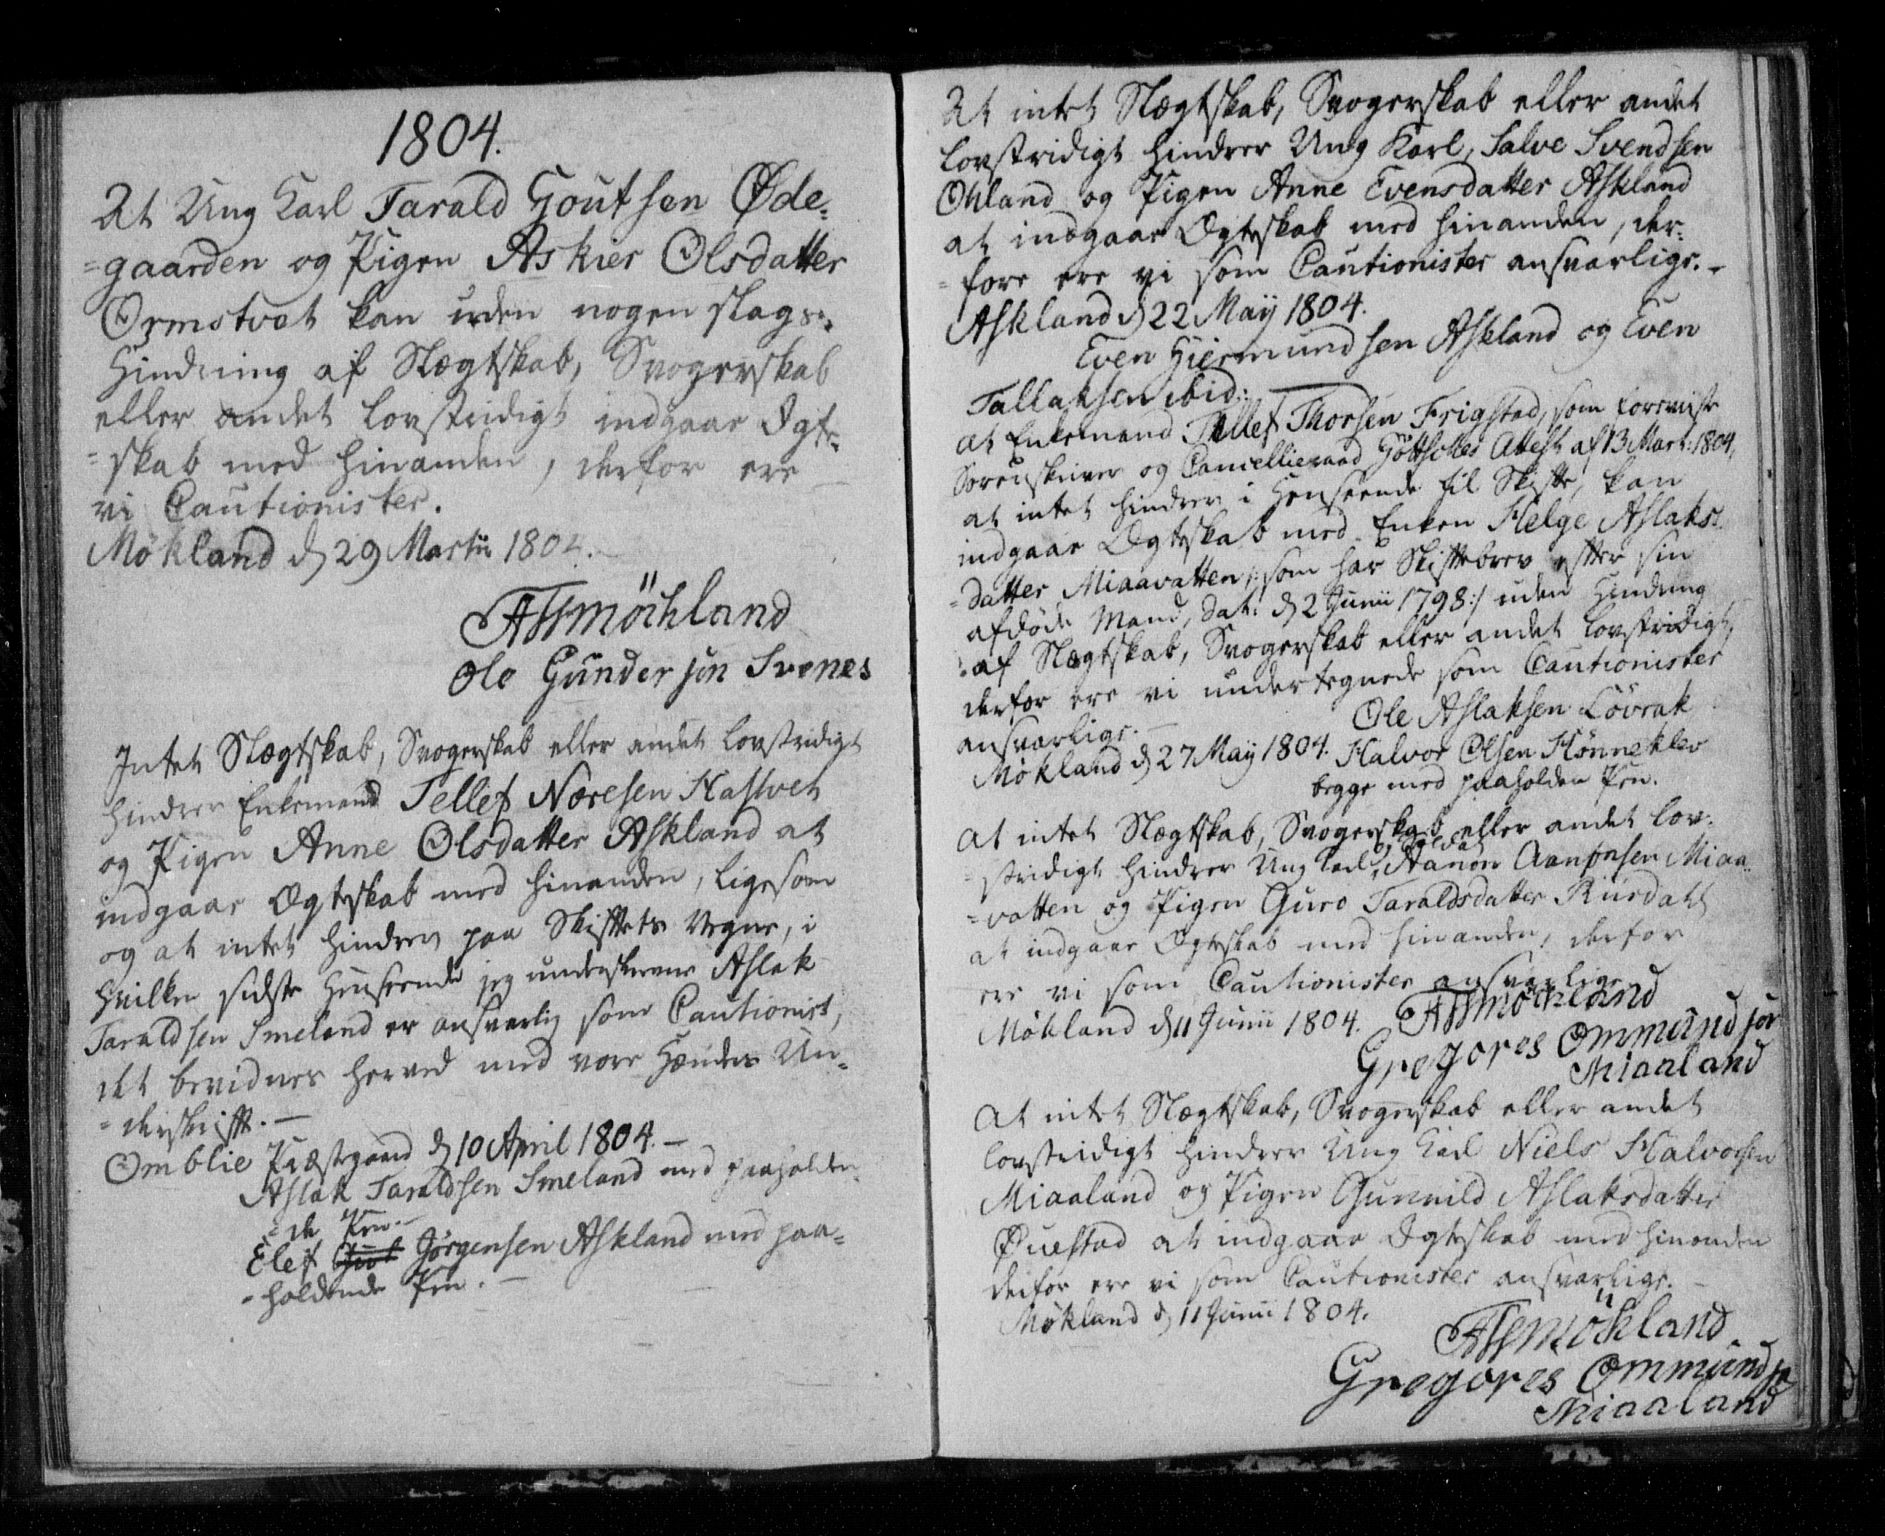 1804.
At Ung Karl Tarald Goutsen Øde-
=gaarden og Pigen Askier Olsdatter
Ormstvet kan uden nogen slags
Hindring af Slægtskab, Svogerskab
eller andet lovstridigt indgaae Egte-
=skab med hinanden, derfor ere
vi Cautionister.
Møkland d 29 Martii 1804.
Møchland
Ole Gundersen Svenes
Intet Slægtskab, Svogerskab eller andet lovstridigt
hindrer Enkemand Tellef Noresen Hastvet
og Pigen Anne Olsdatter Askland at
indgaae Ægteskab med hinanden, ligesom
og at intet hindrer paa Skiftets Vegne, i
hvilken sidste Henseende jeg underskrevne Aslak
Taraldsen Smeland er ansvarlig som Cautionist,
det bevidnes herved med vore Hænders Un-
=derskrifft.
Omblie Præstegaard d 10 April 1804.
Aslak Taraldsen Smeland med paaholden-
=de Pen.
Elef Jørgensen Askland med paa-
=holdende Pen.
At intet Slægtskab, Svogerskab eller andet
lovstridigt hindrer Ung Karl, Salve Svendsen
Okland og Pigen Anne Evensdatter Askland
at indgaae Ægteskab med hinanden, der-
=fore ere vi som Cautionister ansvarlige.
Askland d 22 Maij 1804.
Even Giermundsen Askland og Even
Tallaksen ibid:
At Enkemand Tellef Thorsen Frigstad, som foreviiste
Sorenskriver og Cancellieraad Göttsches Attest af 13 Mart: 1804,
at intet hindrer i Henseende til Skifte, kan
indgaae Ægteskab med Enken Helge Aslaks-
=datter Miaavatten /: som har Skiftebrev efter sin
afdøde Mand, dat: d 2 Junii 1798 :/ uden Hindring
af Slægtskab, Svogerskab eller andet lovstridigt,
derfor ere vi undertegnede som Cautionister
ansvarlige.
Ole Aslaksen Løvrak
Møkland d 27 Maij 1804. Halvor Olsen Hønneklev
begge med paaholden Pen.
At intet Slægtskab, Svogerskab eller andet lov-
=stridigt hindrer Ung Karl Aanon Aanonsen Miaa-
=vatten og Pigen Guro Taraldsdatter Riisdahl
at indgaae Ægteskab med hinanden, derfor
ere vi som Cautionister ansvarlige
Møkland d 11 Junii 1804. Møchland
Gregores Ommundsør
Miaaland
At intet Slægtskab, Svogerskab eller andet
lovstridigt hindrer Ung Karl Niels Halvorsen
Miaaland og Pigen Gunnild Aslaksdatter
Øuestad at indgaae Ægteskab med hinanden
derfor ere vi som Cautionister ansvarlige.
Møkland d 11 Junii 1804.
Møkland
Gregores Ommundsø
Miaaland